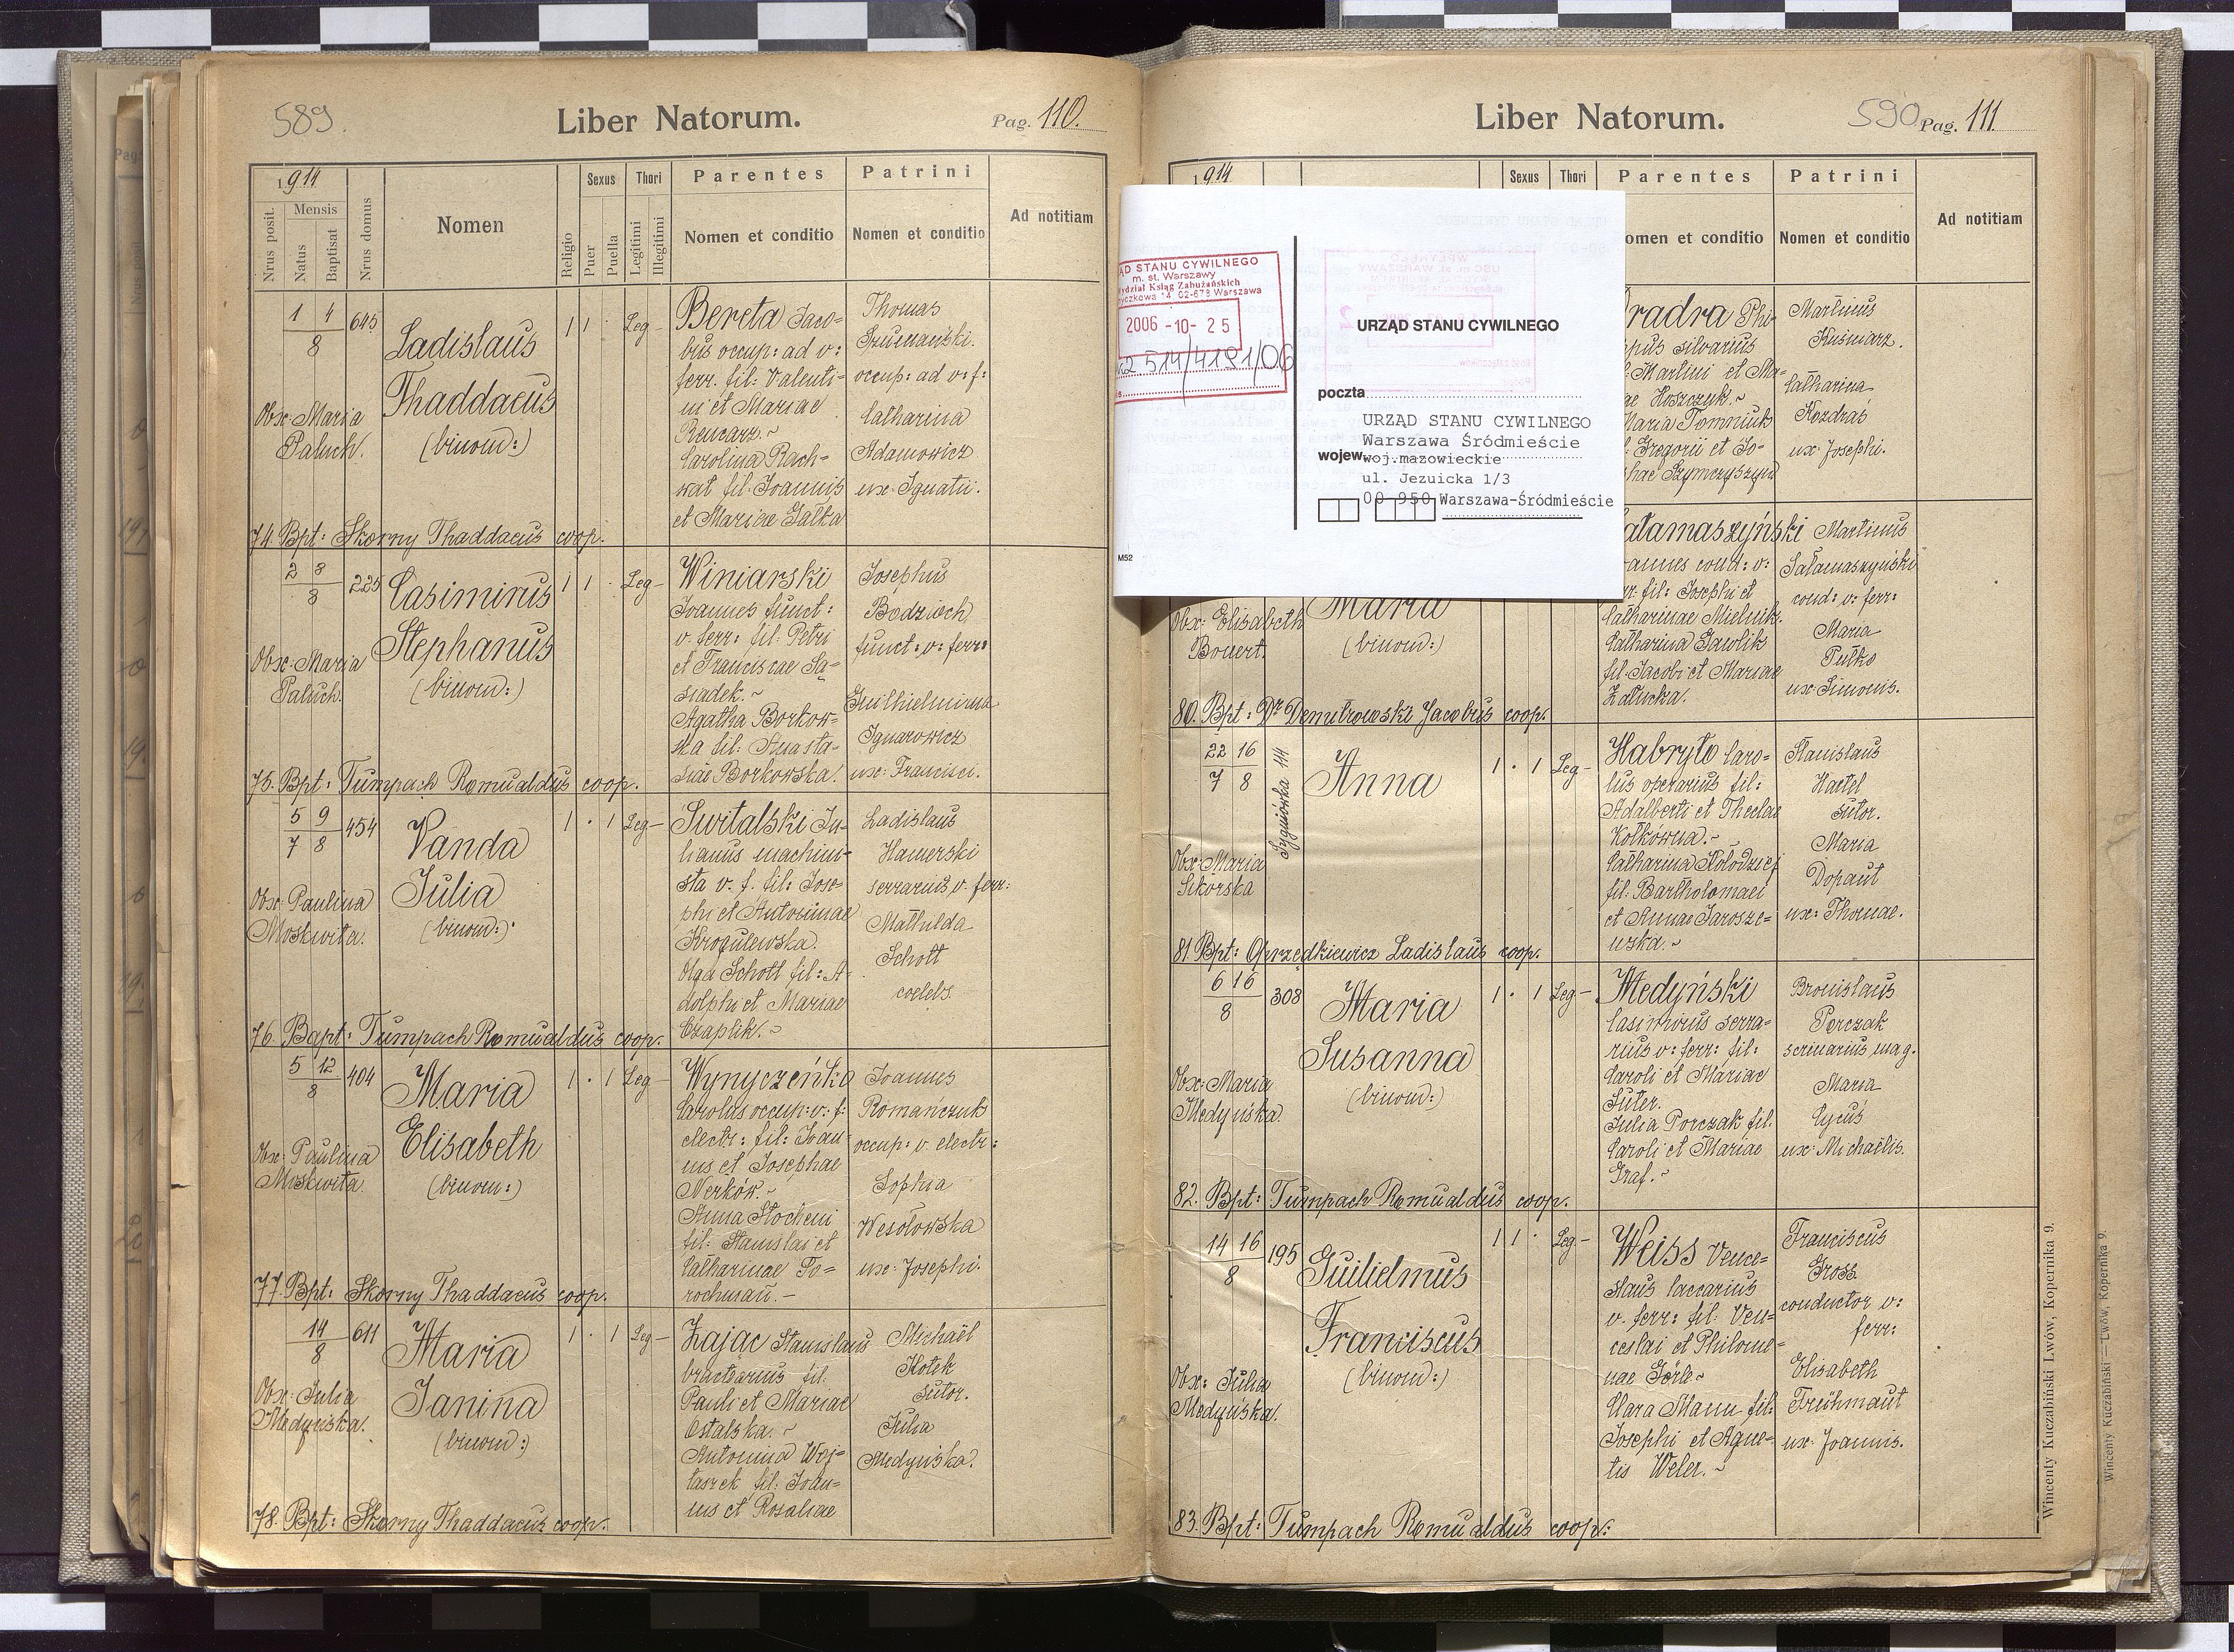 589.
Liber Natorum.
Pag. 110.
1914
Nrus posit.
Mensis
Natus
Baptisat
Nrus domus
Nomen
Religio
Sexus
Puer
Puella
Thori
Legitimi
Illegitimi
Parentes
Nomen et conditio
Patrini
Nomen et conditio
Ad notitiam
1 4
8
645
Ladislaus
Thaddaeus
(binom:)
Obx: Maria
Paluch.
1 1 · Leg –
Bereta Jaco=
bus occup: ad v:
ferr. fil: Valenti=
ni et Mariae
Carolina Rach=
wat fil: Joannis
et Mariae Galka
Thomas
Szumański.
occup: ad v: f:
Catharina
Adamowicz
ux: Ignatii.
74. Bpt: Skorny Thaddaeus coop.
2 8
8
225
Casimirus
Stephanus
(binom:)
Obx: Maria
Paluch.
1 1 · Leg –
Winiarski
Joannes funct:
v. ferr: fil: Petri
et Franciscae Są=
siadek. ~
Agatha Borkow=
ska fil: Anasta=
siae Borkowska.
Josephus
Bodziach
funct: v: ferr:
Guilhielmina
Ignarowicz
ux: Francisci.
75. Bpt: Tumpach Romualdus coop.
5 9
7 8
454
Vanda
Julia
(binom:)
Obx: Paulina
Moskwita.
1 · 1 Leg –
Switalski Ju=
lianus machini=
sta v. f. fil: Jose=
phi et Antoninae
Krogulewska.
Olga Schott fil: A=
dolphi et Mariae
Czaplik. ~
Ladislaus
Hamerski
serrarius v. ferr:
Mathilda
Schott
coelebs.
76. Bapt: Tumpach Romualdus coop.
5 12
8
404
Maria
Elisabeth
(binom:)
Obx: Paulina
Moskwita.
1 · 1 Leg –
Wynyczeńko
Carolus occup: v: f:
electr: fil: Joan=
nis et Josephae
Nerków. ~
Anna
fil: Stanislai et
Catharinae To=
Joannes
Romańczuk
occup: v. electr:
Sophia
Wesołowska
ux: Josephi.
77. Bpt: Skorny Thaddaeus coop.
14
8
611
Maria
Janina
(binom:)
Obx: Julia
Medyńska.
1 · 1 Leg –
Zając Stanislaus
bractearius fil.
Pauli et Mariae
Ostalska. ~
Antonina Woj=
tasrek fil: Joan=
nis et Rosaliae
Michaël
Kotek
sutor.
Julia
Medyńska.
78. Bpt: Skorny Thaddaeus coop.
Liber Natorum.
590
Pag. 111.
1914
Sexus
Thori
Parentes
omen et conditio
Patrini
Nomen et conditio
Ad notitiam
radra Phi=
pus silvarius
: Martini et Ma=
ae Hoszczuk. ~
Maria Tomniuk
l: Gregorii et So=
phae Szymczyszyn
Martinus
Kuśniarz.
Catharina
Kozdraś
ux: Josephi.
ĄD STANU CYWILNEGO
m. st. Warszawy
ydział Ksiąg Zabużańskich
yczkowa 14, 02-678 Warszawa
2006 -10- 25
2514/4191/06
URZĄD STANU CYWILNEGO
poczta
URZĄD STANU CYWILNEGO
Warszawa Śródmieście
wojew.
woj.mazowieckie
ul. Jezuicka 1/3
00 950 Warszawa-Śródmieście
M52
Maria
(binom:)
Obx: Elisabeth
Bonert.
ałamaszyński
oannes cond: v:
rr: fil: Josephi et
Catharinae Mielnik.
Catharina Gawlik
fil: Jacobi et Mariae
Załucka.
Martinus
Sałamaszyński
cond: v: ferr:
Maria
Pulko
ux: Simonis.
80. Bpt: Dr Demitrowski Jacobus coop.
22 16
7 8
Sygniówka 114
Anna
Obx: Maria
Sikorska
1 · 1 Leg –
Habryło Caro=
lus operarius fil:
Adalberti et Theclae
Kołkówna. ~
Catharina Kołodziej
fil: Bartholomaei
et Annae Jarosze=
wska. ~
Stanislaus
Hactel
sutor.
Maria
Dopaut
ux: Thomae.
81. Bpt: Oprzędkiewicz Ladislaus coop.
6 16
8
308
Maria
Susanna
(binom:)
Obx: Maria
Medyńska.
1 · 1 Leg –
Medyński
Casimirus serra=
rius v: ferr: fil:
Caroli et Mariae
Suter.
Julia Porczak fil.
Caroli et Mariae
Graf. ~
Bronislaus
Porczak
scriniarius mag.
Maria
Cycuś
ux: Michaëlis.
82. Bpt: Tumpach Romualdus coop.
14 16
8
195
Guilielmus
Franciscus
(binom:)
Obx: Julia
Medyńska.
1 1 · Leg –
Weiss Vence=
slaus laccarius
v. ferr: fil: Ven=
ceslai et Philome=
nae Görle ~
Clara Mann fil:
Josephi et Agne=
tis Weler. ~
Franciscus
Gross
conductor v:
ferr:
Elisabeth
Frühmaut
ux: Joannis.
83. Bpt: Tumpach Romualdus coop:
Wincenty Kuczabiński Lwów, Kopernika 9.
Wincenty Kuczabiński — Lwów, Kopernika 9.